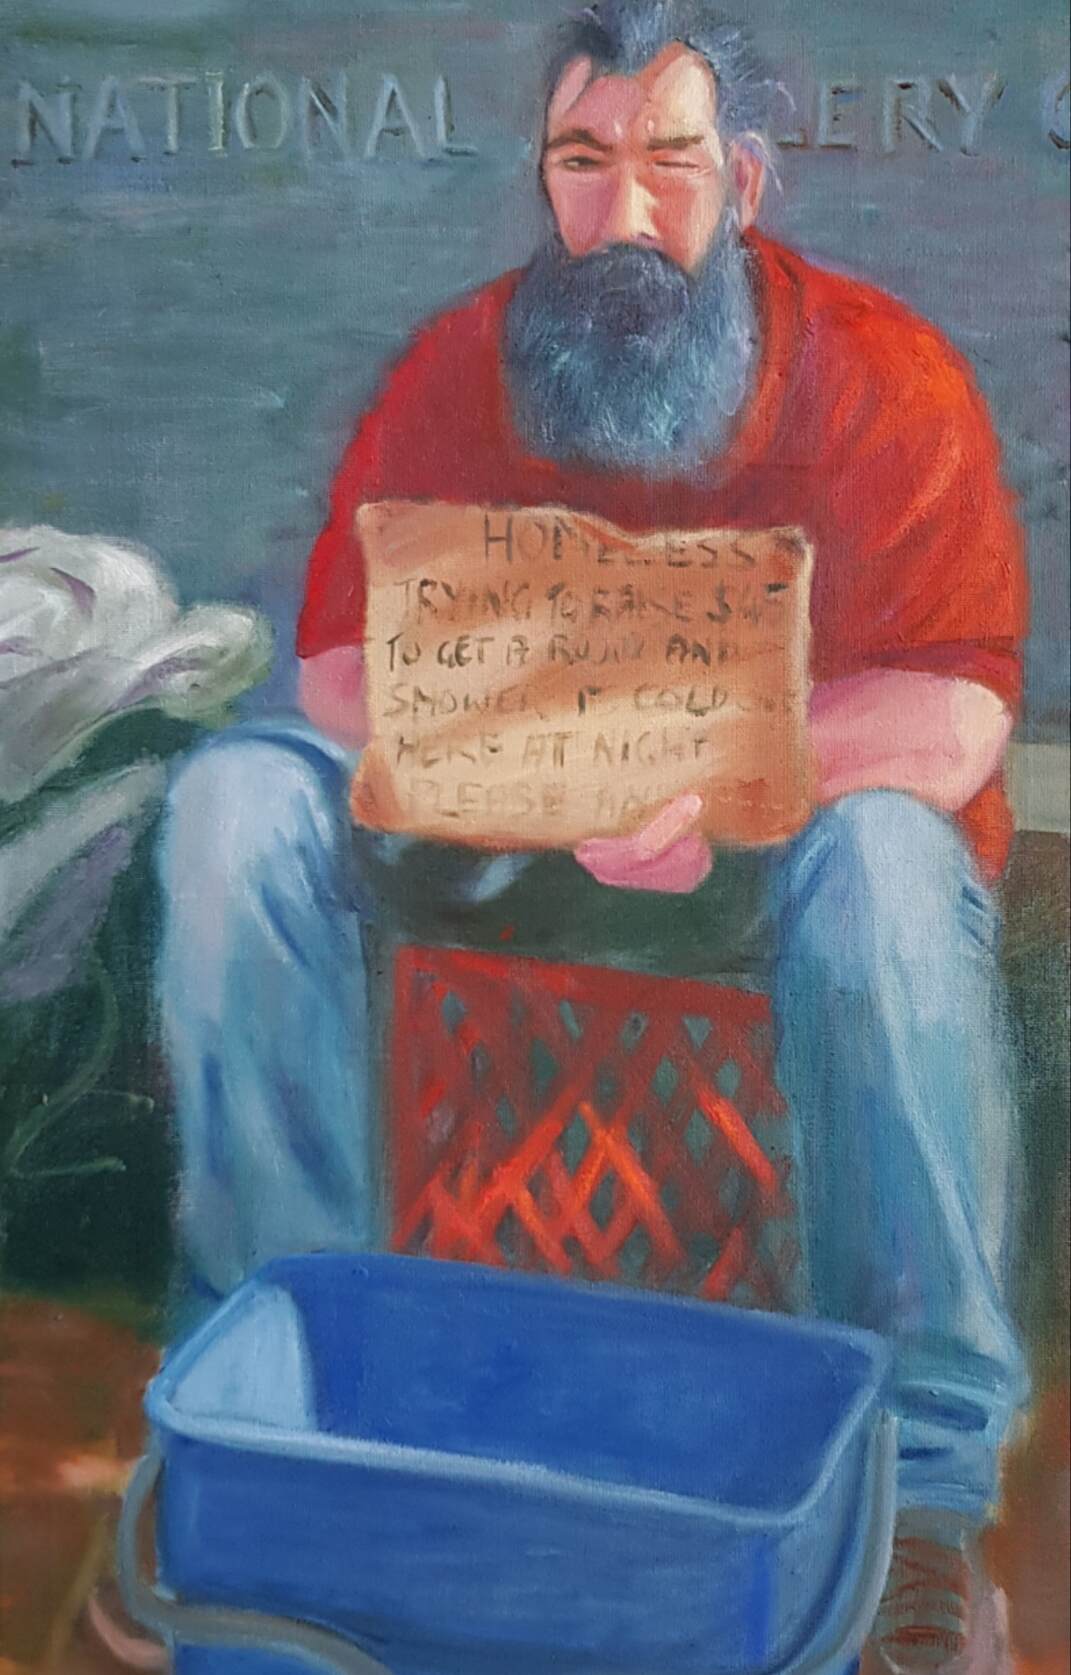 NATIONAL LERY
HOMELESS
TRYING TO RAISE
TO GET A ROOM AND
SHOWER IT COLD
HERE AT NIGHT
PLEASE